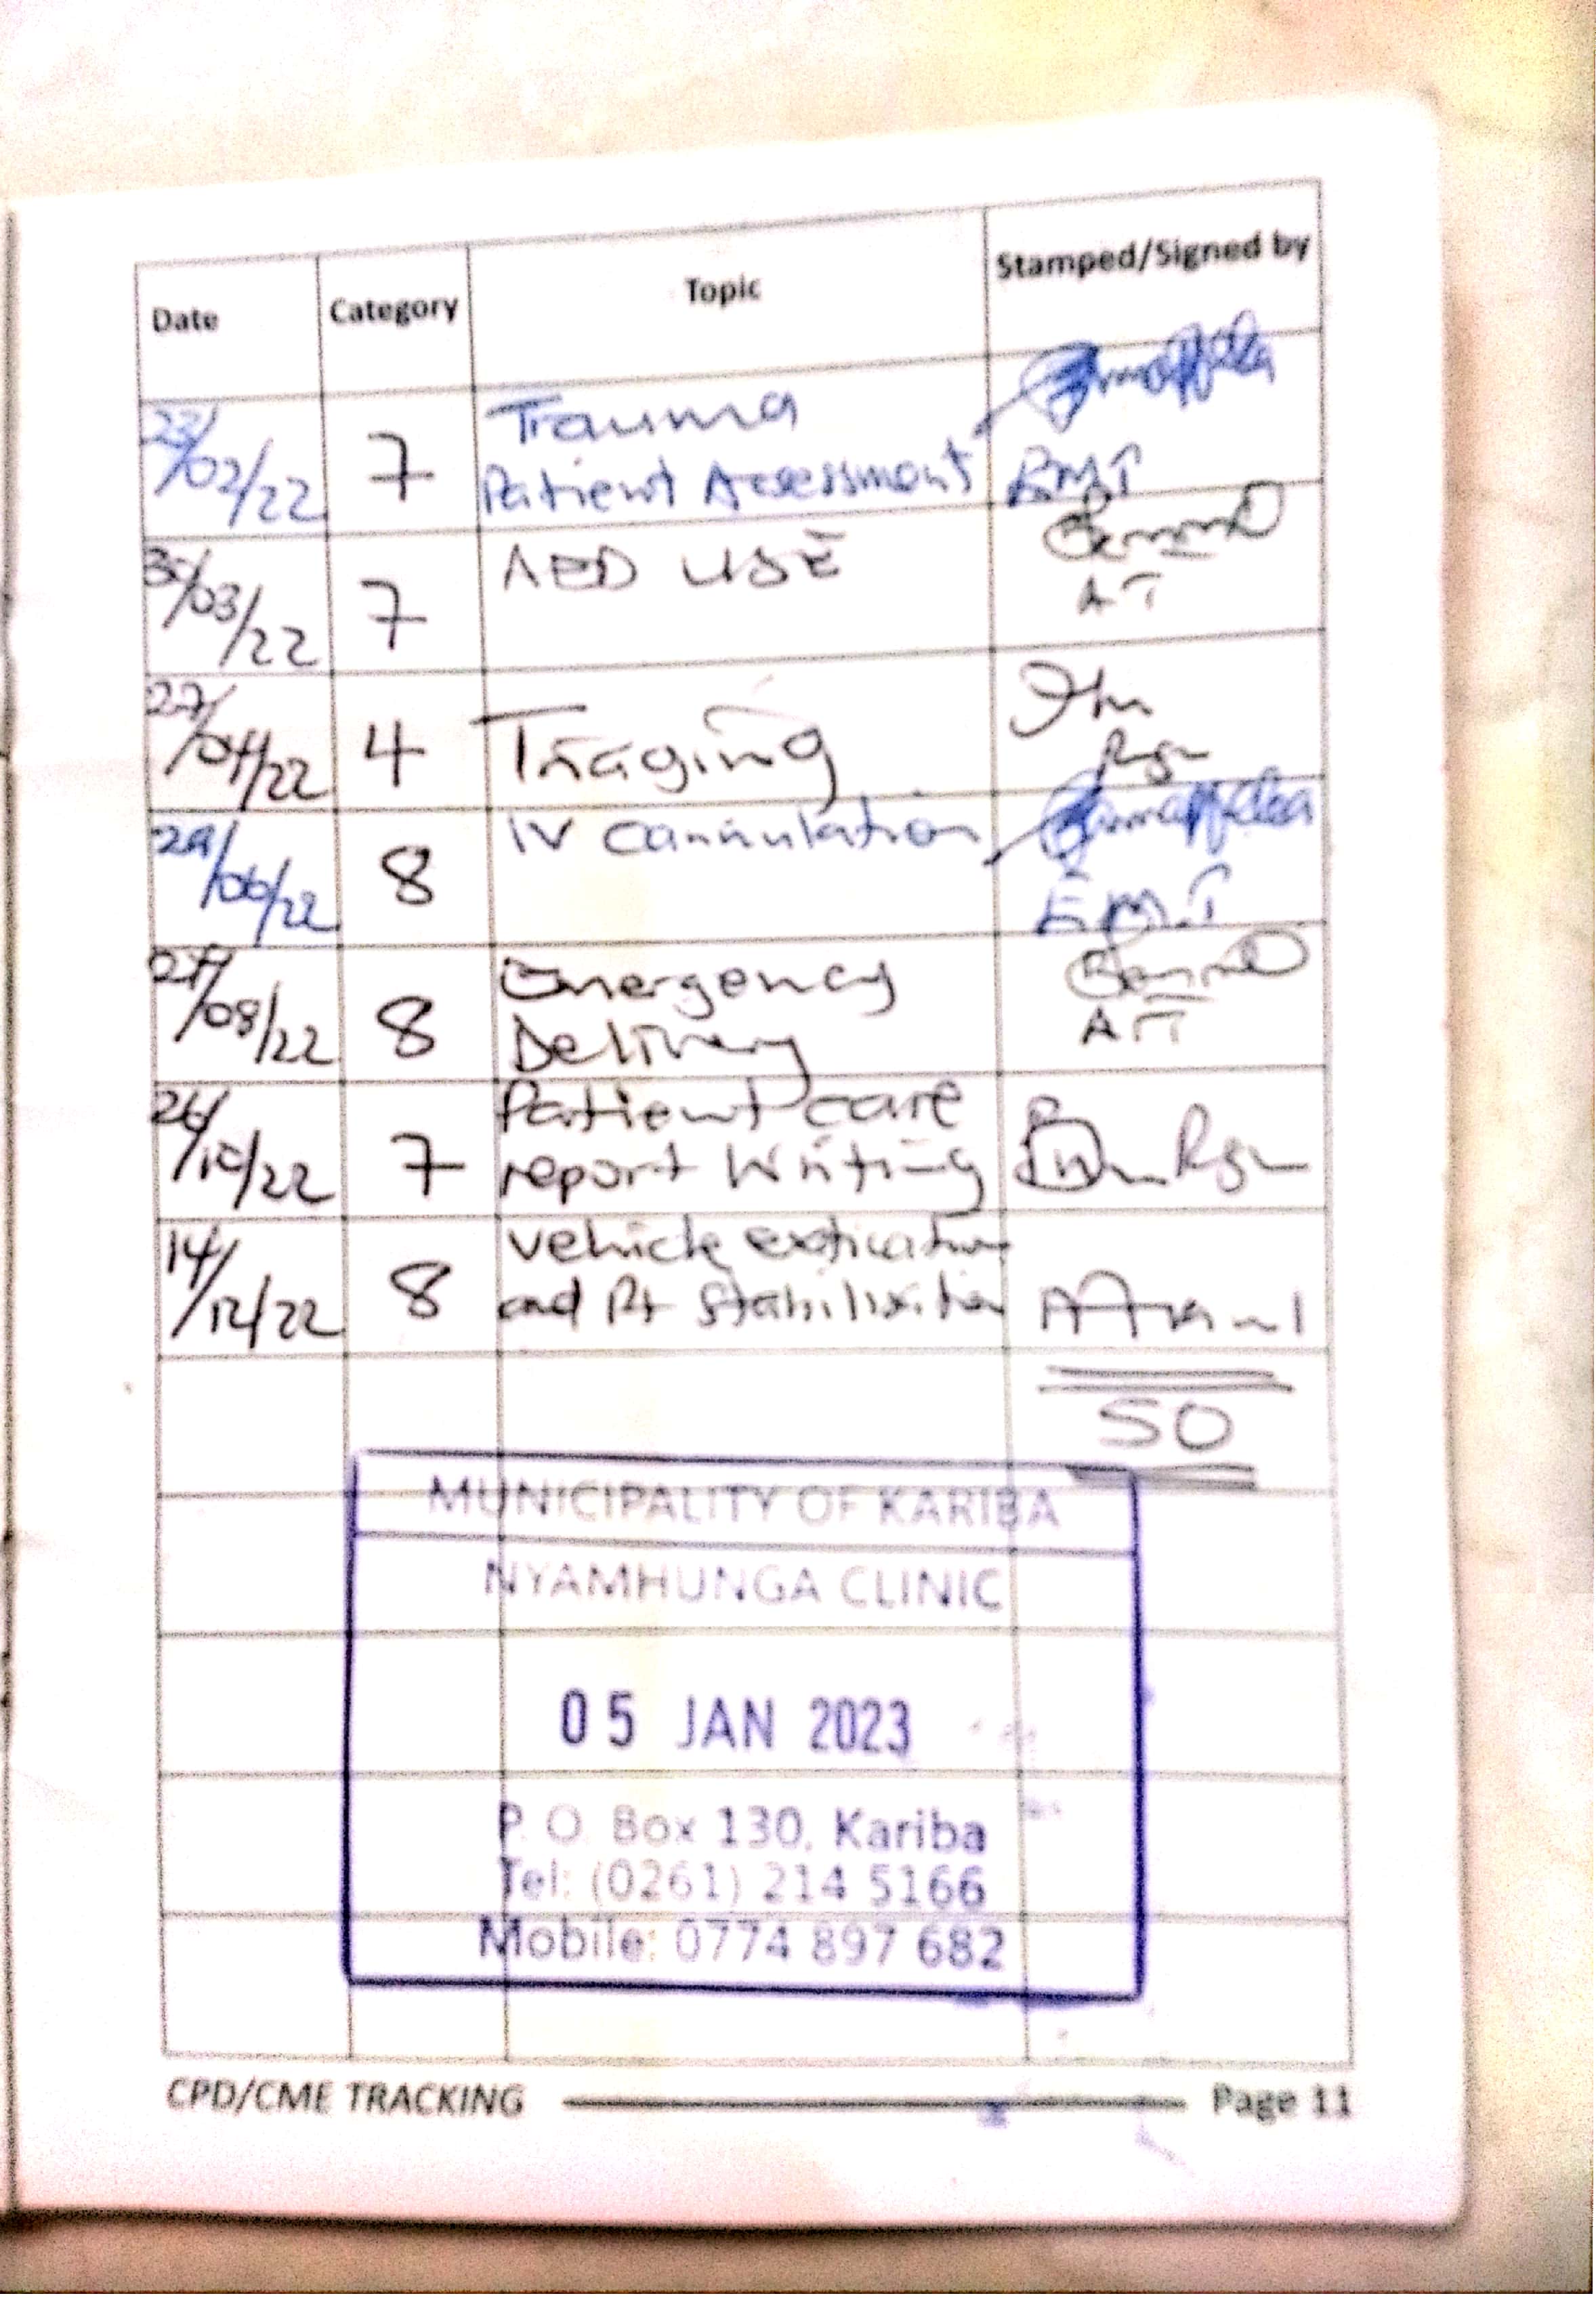 Date Category Topic Stamped/Signed by
23/02/22 7 Trauma
Patient Assessment EMT
30/03/22 7 AED USE
AT
27/04/22 4 Triaging
Rgn
29/06/22 8 IV Cannulation
EMT
27/08/22 8 Emergency
Delivery AT
26/10/22 7 Patient care
report Writing Rgn
14/12/22 8 vehicle extrication
and Pt Stabilisation
50
MUNICIPALITY OF KARIBA
NYAMHUNGA CLINIC
05 JAN 2023
P. O. Box 130, Kariba
Tel: (0261) 214 5166
Mobile: 0774 897 682
CPD/CME TRACKING Page 11